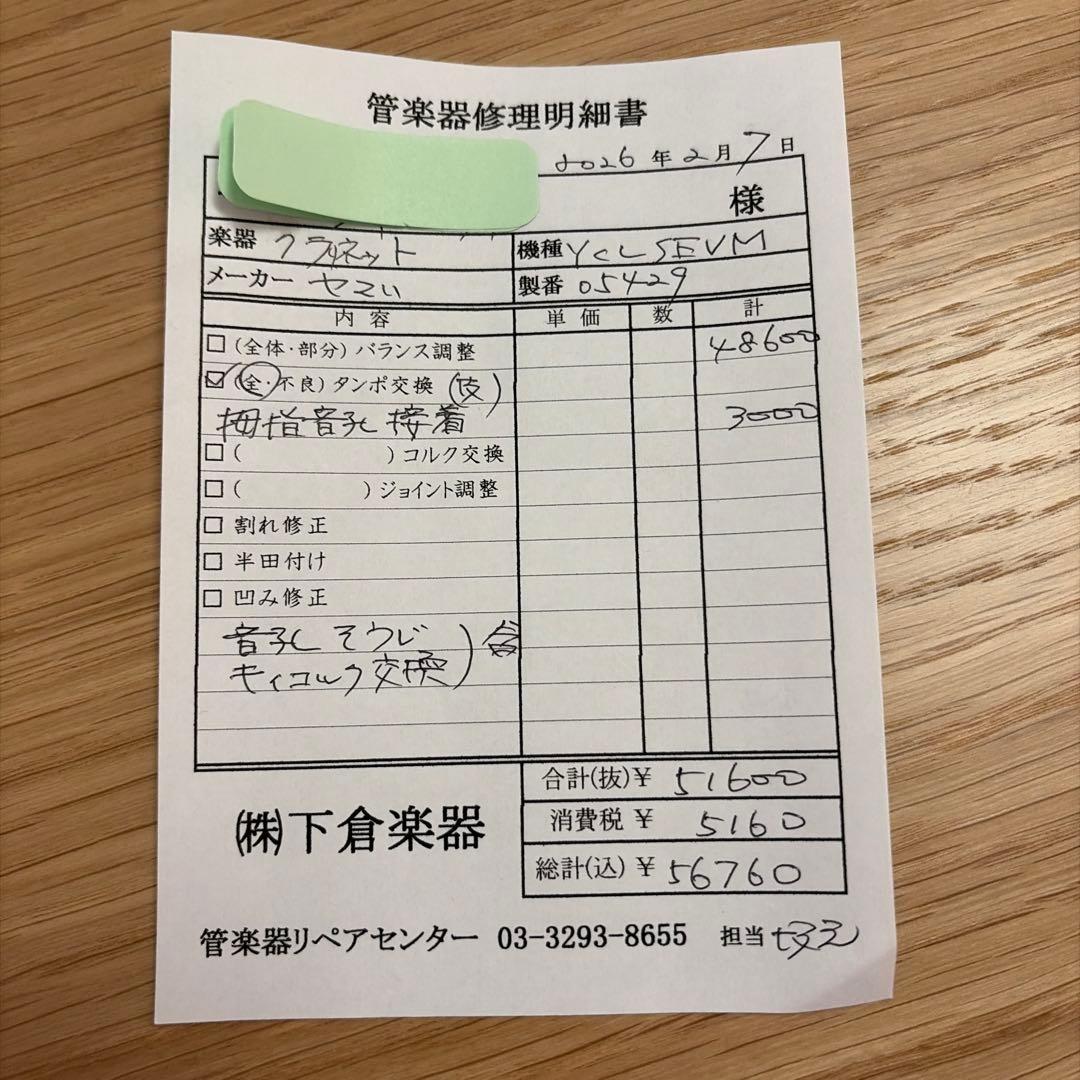 管楽器修理明細書
2026年2月7日
様
楽器 クラリネット 機種 YCL SEVM
メーカー ヤマハ 製番 05429
内容 単価 数 計
□(全体・部分)バランス調整 48600
☑(全・不良)タンポ交換(皮)
拇指音孔接着 3000
□( )コルク交換
□( )ジョイント調整
□割れ修正
□半田付け
□凹み修正
音孔そうじ
キィコルク交換 )含
合計(抜)¥ 51600
消費税 ¥ 5160
総計(込)¥ 56760
㈱下倉楽器
管楽器リペアセンター 03-3293-8655 担当